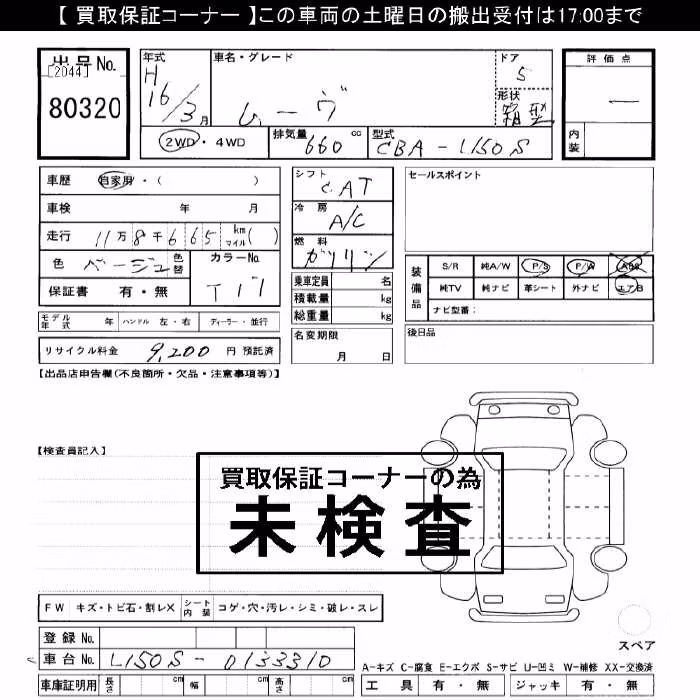 【 買取保証コーナー 】この車両の土曜日の搬出受付は17:00まで
出品No.
[2044]
80320
年式
H
16/3月
車名・グレード
ムーヴ
ドア
5
形状
箱型
評価点
—
内装
2WD・4WD
排気量 660 cc
型式 CBA-L150S
車歴 自家用・( )
車検 年 月
走行 11万8千665 km マイル( )
色 ベージュ 色替
カラーNo. T17
保証書 有・無
モデル年式 年 ハンドル 左・右 ディーラー・並行
リサイクル料金 9,200 円 預託済
シフト
CAT
冷房
A/C
燃料
ガソリン
乗車定員 名
積載量 kg
総重量 kg
名変期限
月 日
セールスポイント
装備品
S/R 純A/W P/S P/W ABS
純TV 純ナビ 革シート 外ナビ エアB
ナビ型番:
後日品
【出品店申告欄(不良箇所・欠品・注意事項等)】
【検査員記入】
買取保証コーナーの為
未検査
FW キズ・トビ石・割レX シート内装 コゲ・穴・汚レ・シミ・破レ・スレ
登録No.
車台No. L150S-0133310
車庫証明用 長さ cm 幅 cm 高さ cm
スペア
A-キズ C-腐食 E-エクボ S-サビ U-凹ミ W-補修 XX-交換済
工具 有・無 ジャッキ 有・無